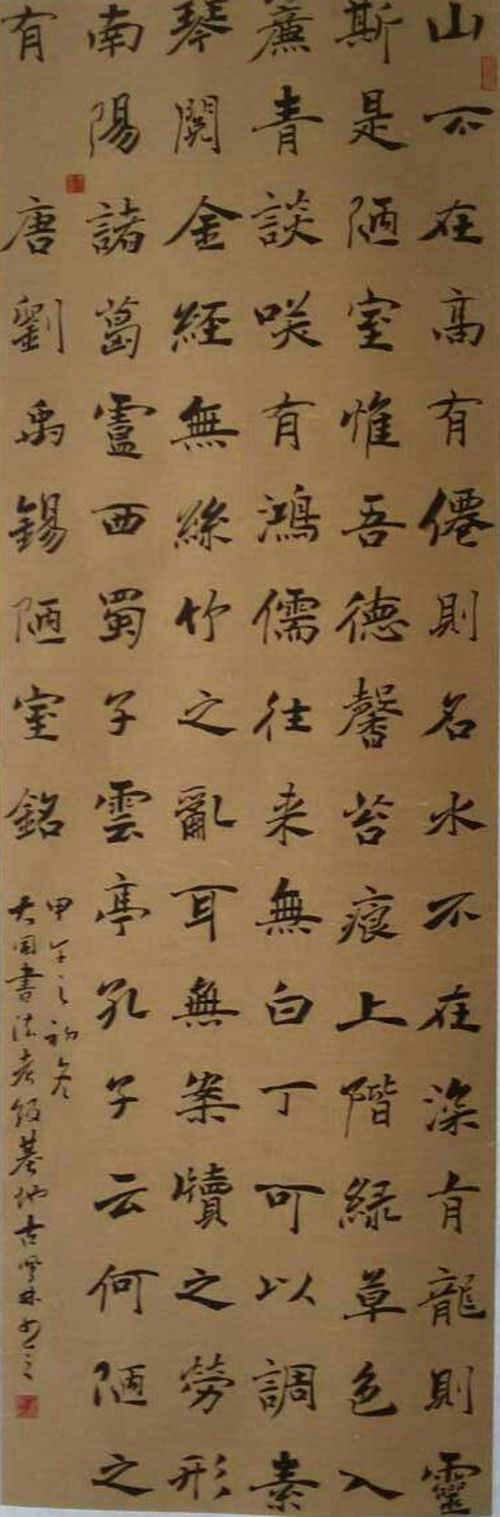 山不在高有僊則名水不在深有龍則靈
斯是陋室惟吾德馨苔痕上階緑草色入
簾青談咲有鴻儒往来無白丁可以調素
琴閱金經無絲竹之亂耳無案牘之勞形
南陽諸葛盧西蜀子雲亭孔子云何陋之
有 唐劉禹錫陋室銘
甲午之初冬
大国書法考级基地古林书之